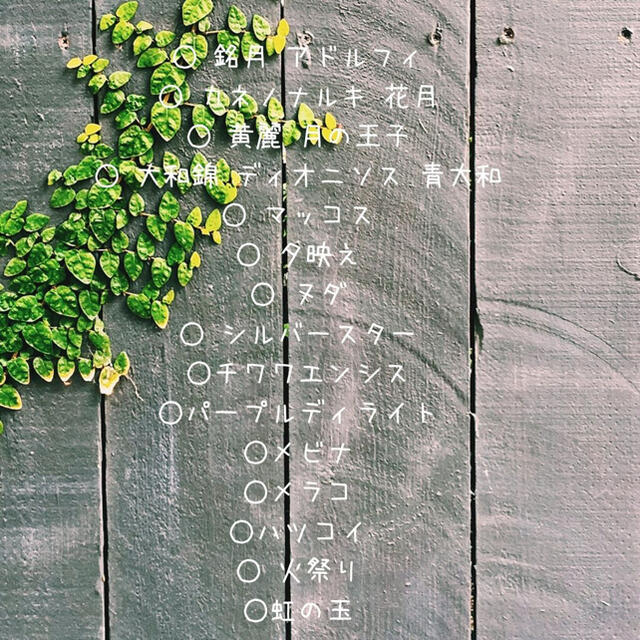 ○ 銘月 アドルフィ
○ カネノナルキ 花月
○ 黄麗 月の王子
○ 大和錦 ディオニソス 青大和
○ マッコス
○ 夕映え
○ ヌダ
○ シルバースター
○チワワエンシス
○パープルディライト
○メビナ
○メラコ
○ハツコイ
○ 火祭り
○虹の玉